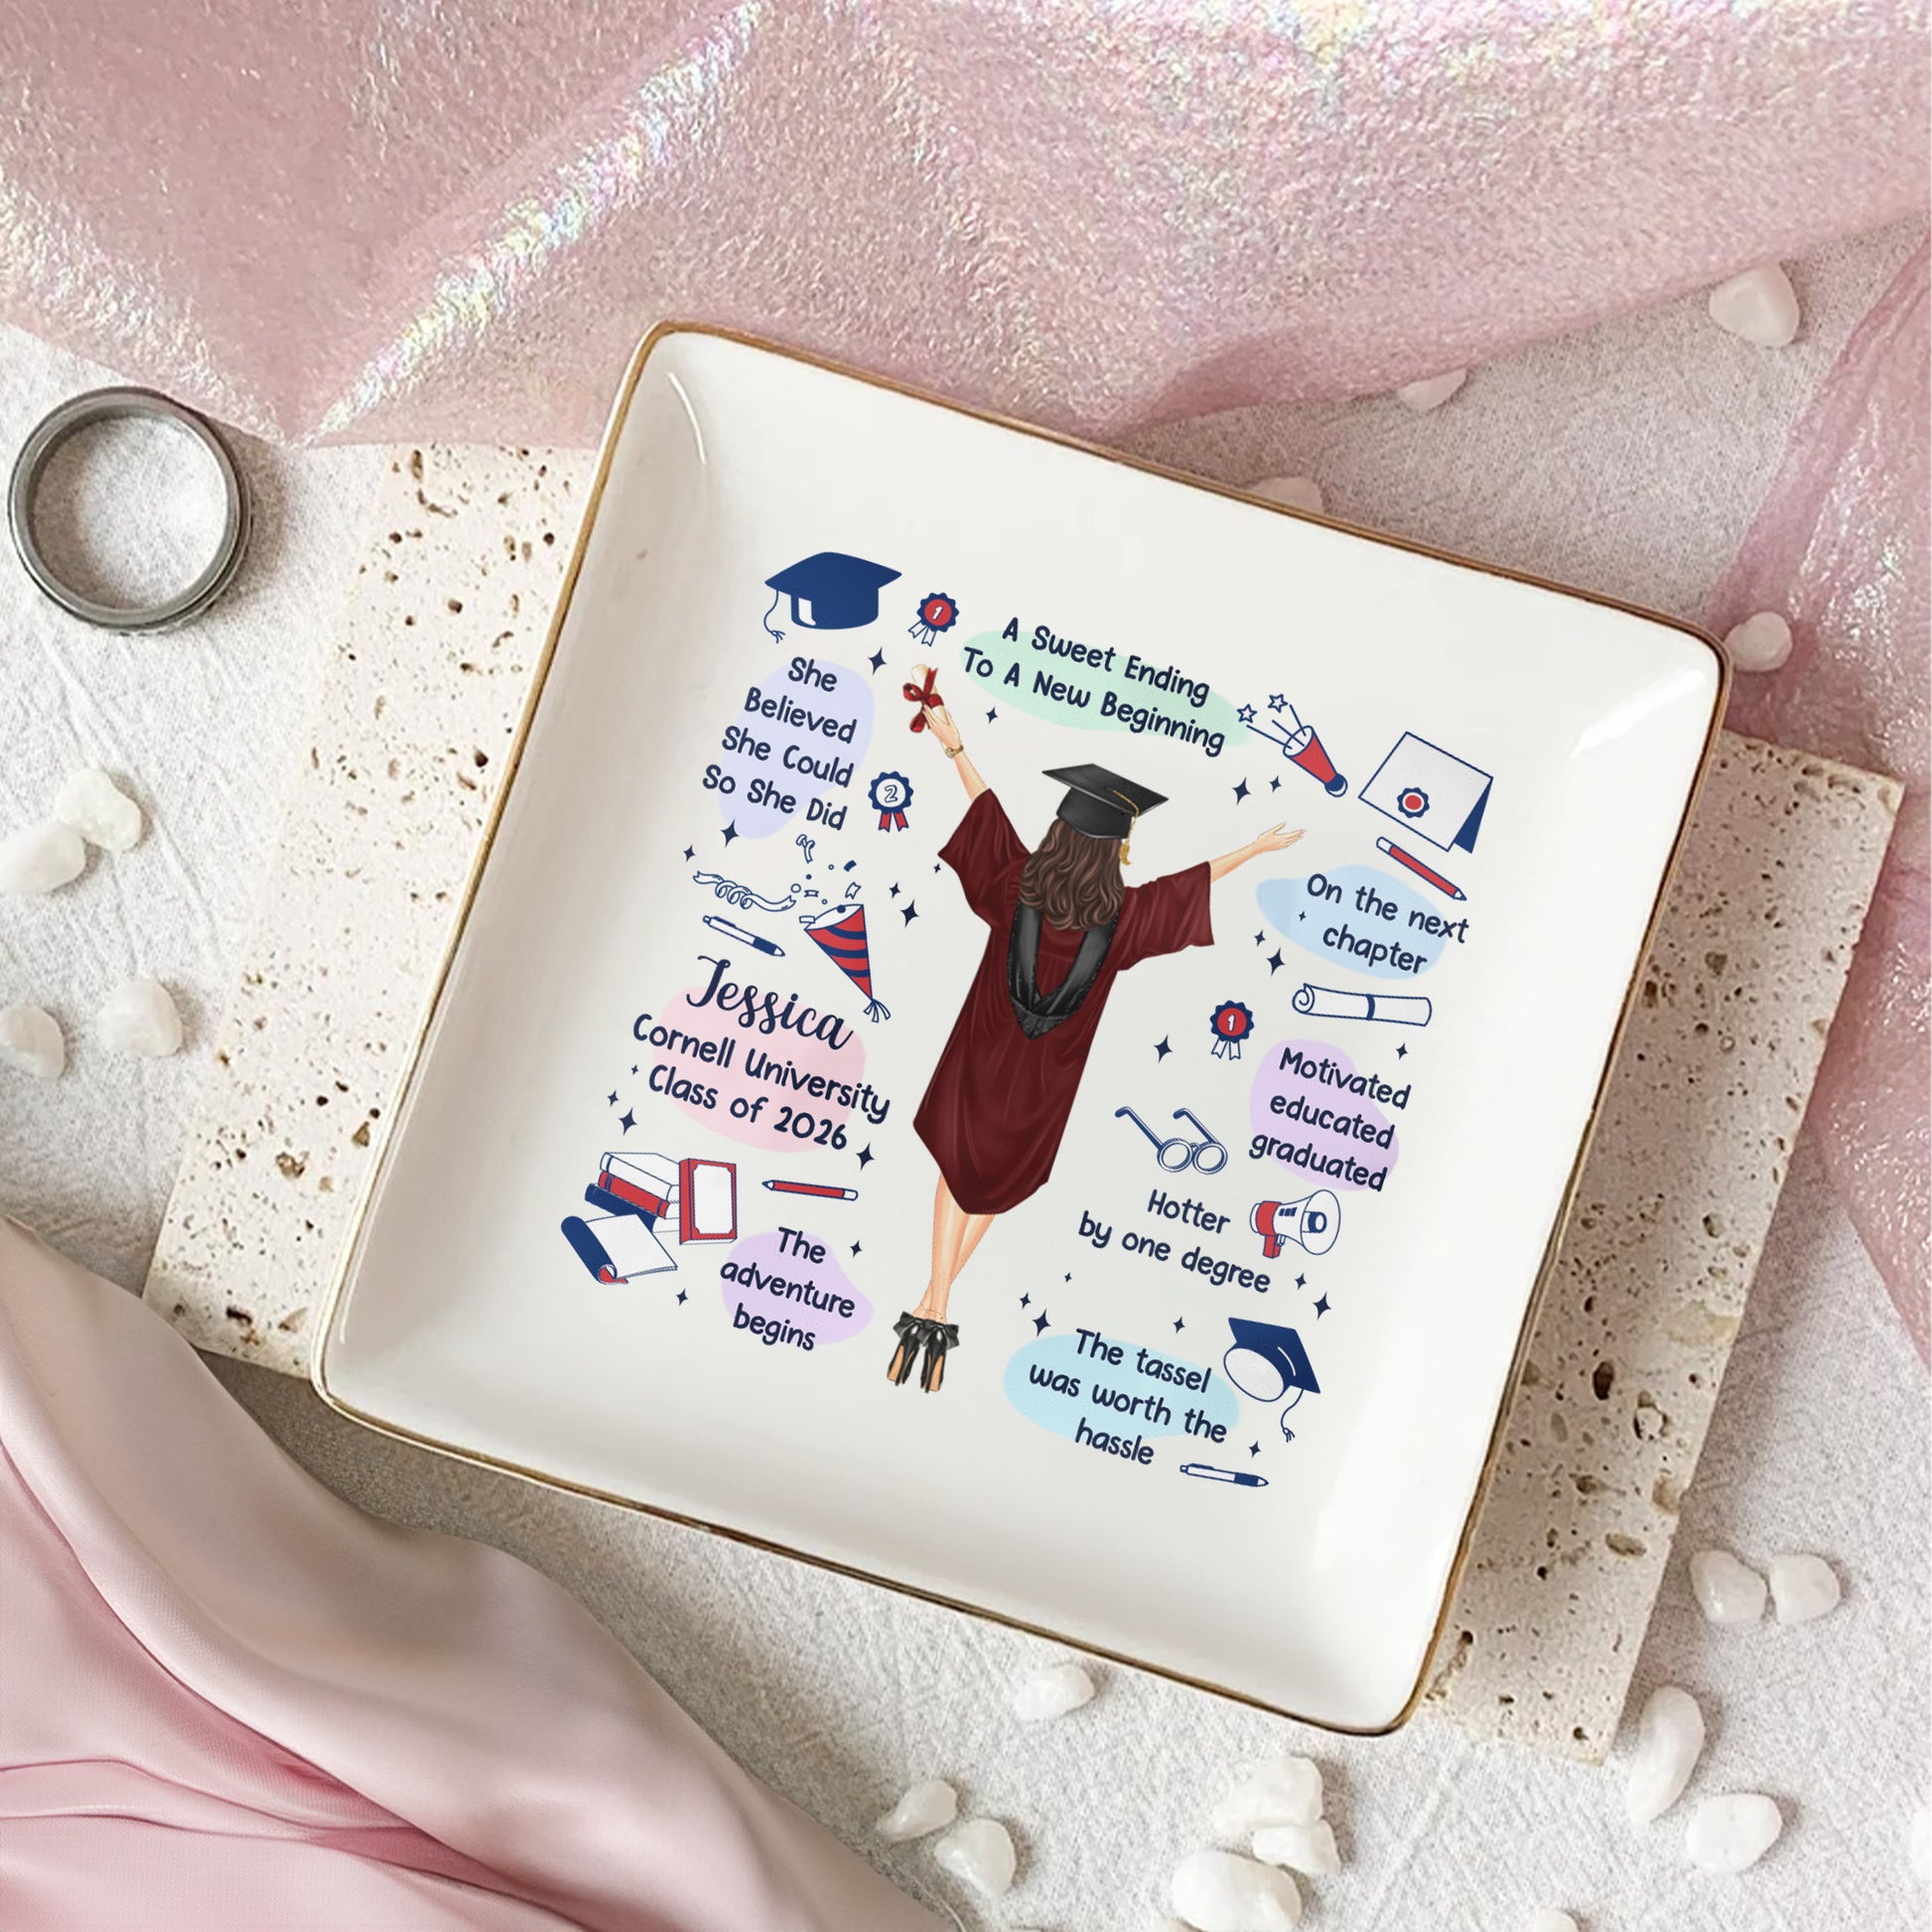 1
A Sweet Ending
To A New Beginning
She
Believed
She Could
So She Did
2
On the next
chapter
Jessica
Cornell University
Class of 2026
1
Motivated
educated
graduated
Hotter
by one degree
The
adventure
begins
The tassel
was worth the
hassle